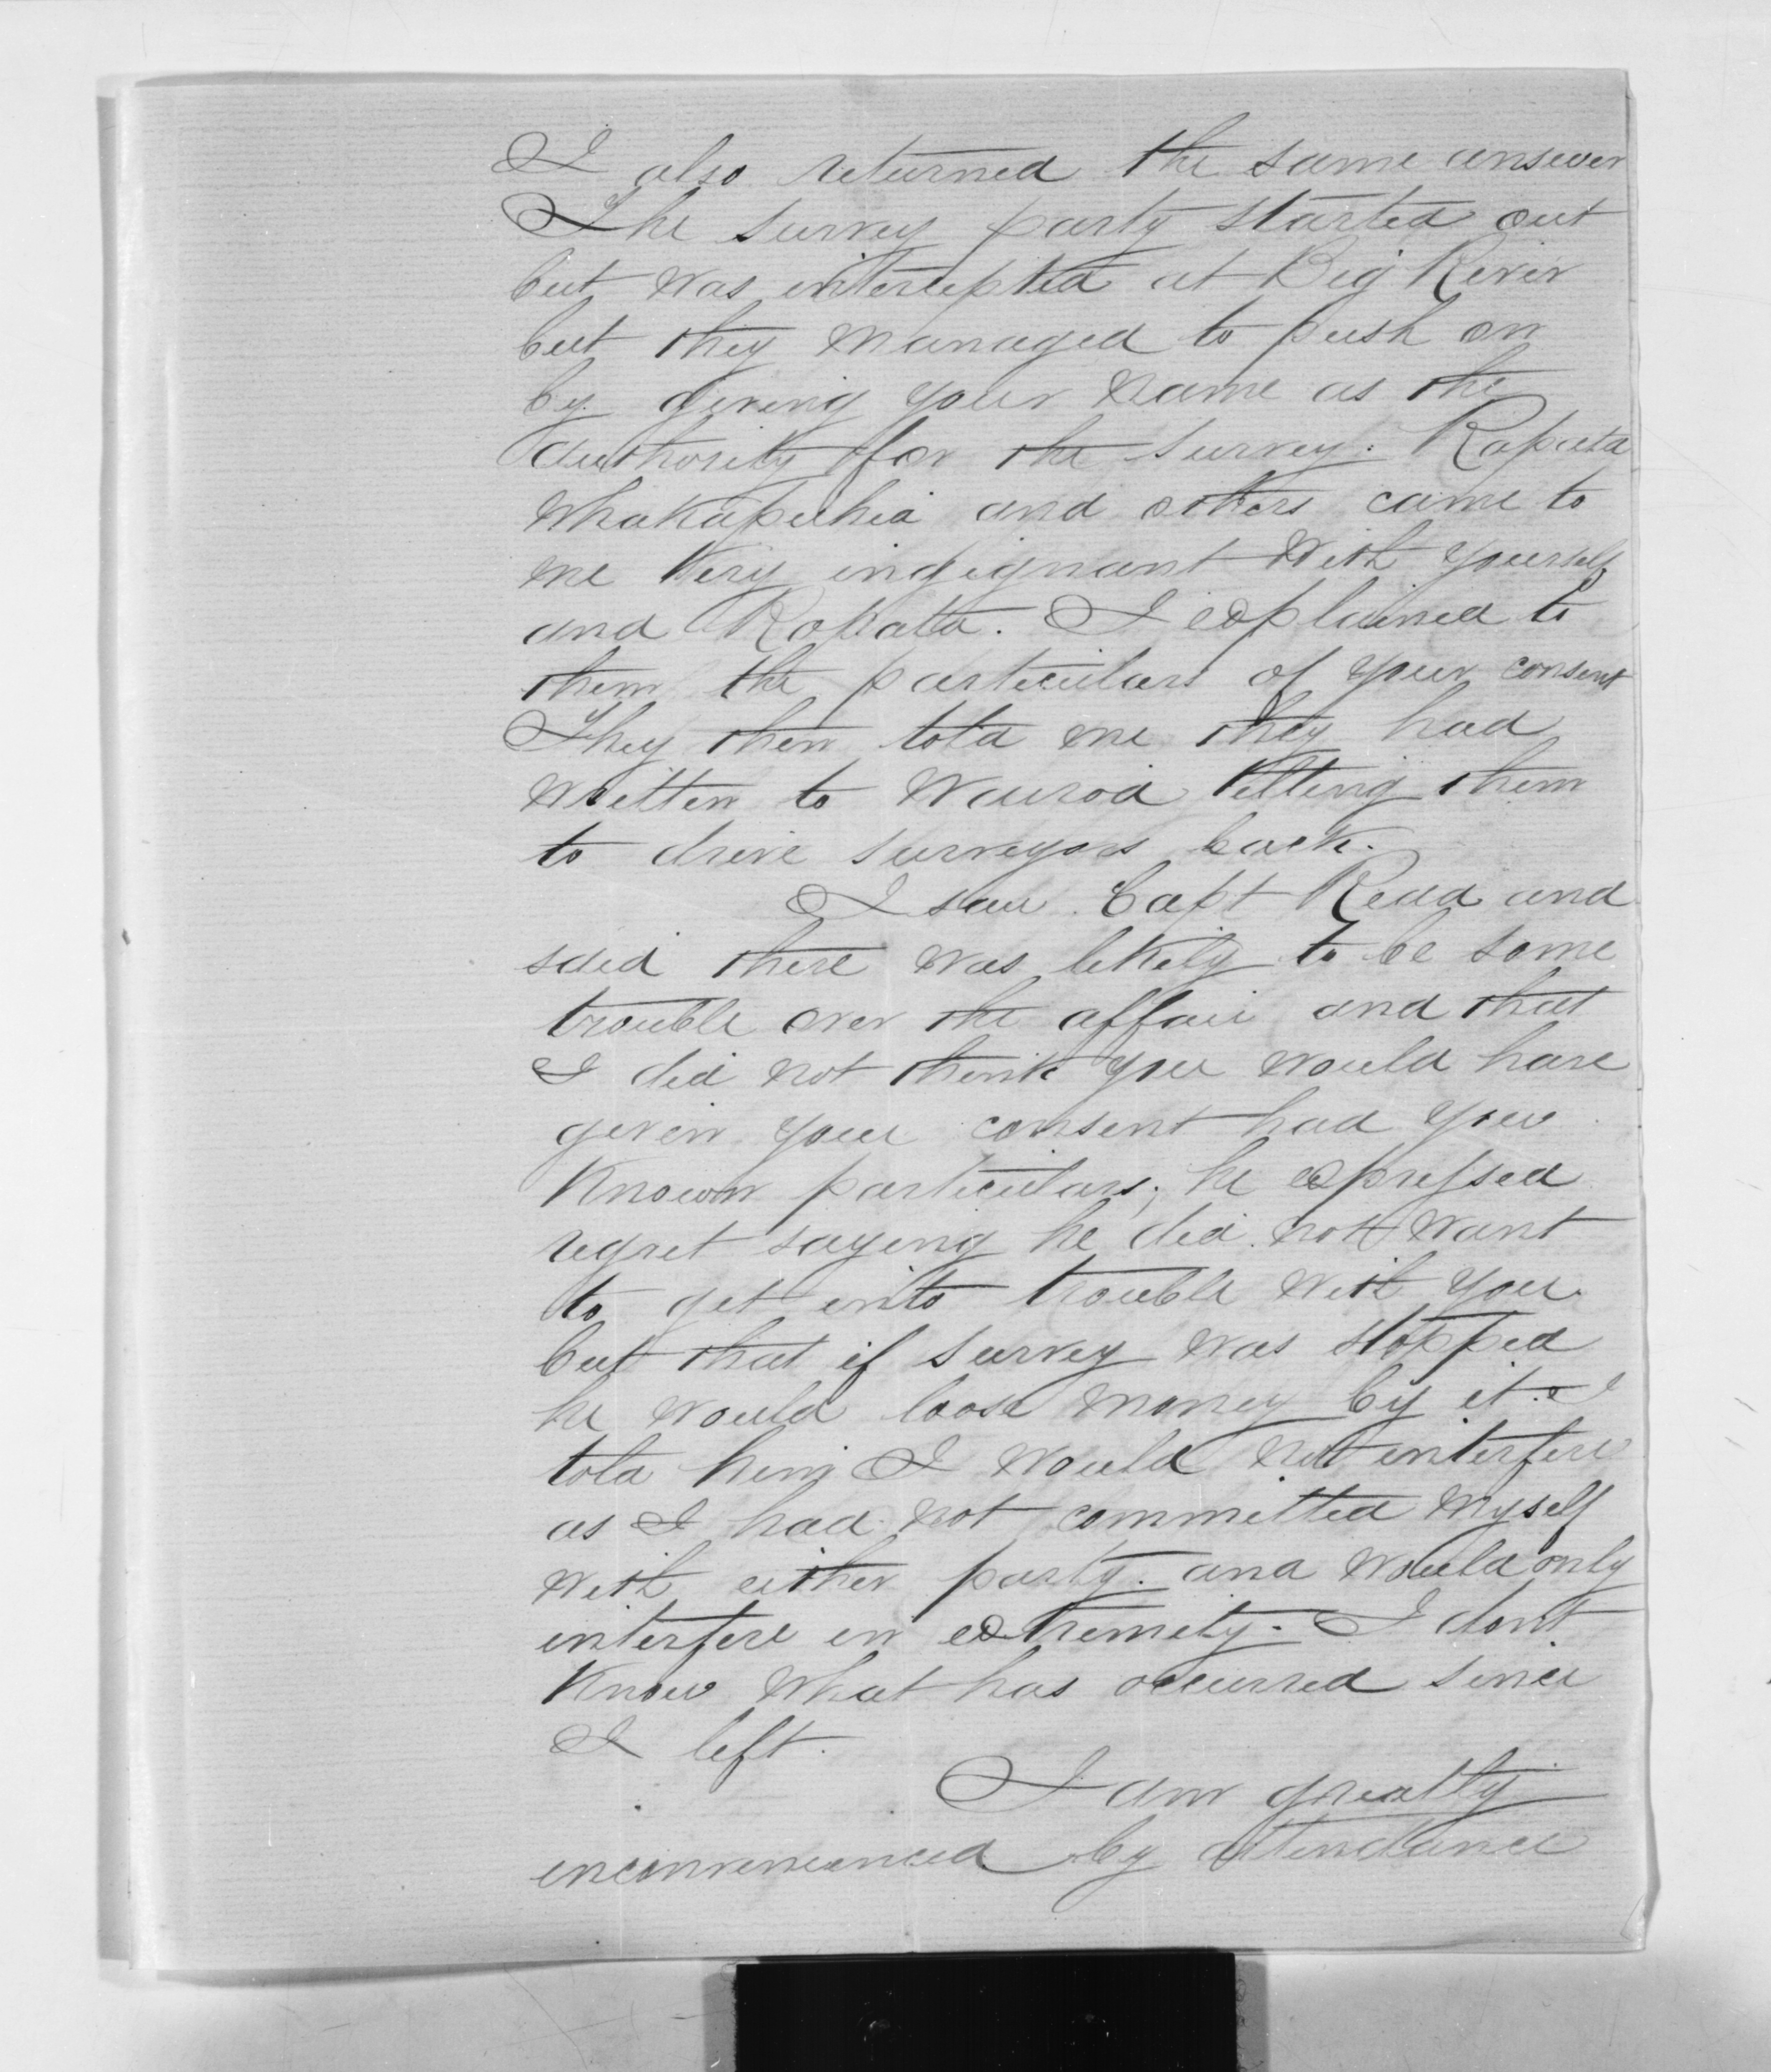 I also returned the same answer
The survey party started out
but was intercepted at Big River
but they managed to push on
by giving your name as the
authority for the survey. Rapata
Whakapuhia and others came to
me very indignant with yourself
and Ropata. I explained to
them the particulars of your consent
They then told me they had
written to Wairoa telling them
to drive surveyors back.
I saw Capt Read and
said there was likely to be some
trouble over the affair and that
I did not think you would have
given your consent had you
known particulars; he expressed
regret saying he did not want
to get into trouble with you
but that if survey was stopped
he would loose money by it. I
told him I would not interfere
as I had not committed myself
with either party and would only
interfere in extremity. I dont
know what has occurred since
I left.
I am greatly
inconvenienced by attendance